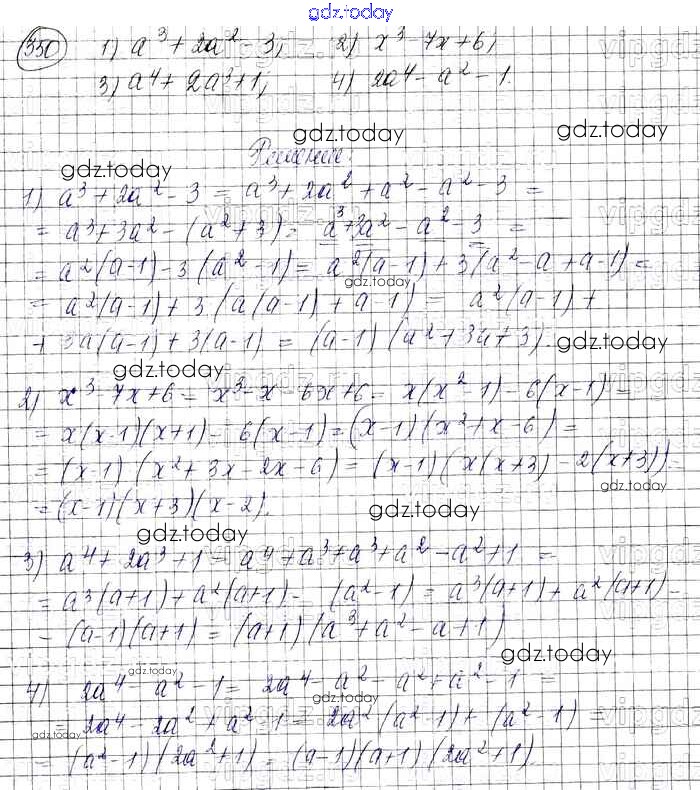 gdz.today
350 1) a³ + 2a² - 3; 2) x³ - 7x + 6;
3) a⁴ + 2a³ + 1; 4) 2a⁴ - a² - 1.
gdz.today gdz.today
Решение:
gdz.today
1) a³ + 2a² - 3 = a³ + 2a² + a² - a² - 3 =
= a³ + 3a² - (a² + 3) = a³ + 3a² - a² - 3 =
= a²(a-1) - 3(a² - 1) = a²(a-1) + 3(a² - a + a - 1) =
gdz.today
= a²(a-1) + 3(a(a-1) + a-1) = a²(a-1) +
+ 3a(a-1) + 3(a-1) = (a-1)(a² + 3a + 3).
gdz.today
gdz.today
2) x³ - 7x + 6 = x³ - x - 6x + 6 = x(x² - 1) - 6(x-1) =
= x(x-1)(x+1) - 6(x-1) = (x-1)(x² + x - 6) =
= (x-1)(x² + 3x - 2x - 6) = (x-1)(x(x+3) - 2(x+3))
gdz.today
= (x-1)(x+3)(x-2).
gdz.today
gdz.today
3) a⁴ + 2a³ + 1 = a⁴ + a³ + a³ + a² - a² + 1 =
= a³(a+1) + a²(a+1) - (a² - 1) = a³(a+1) + a²(a+1) -
- (a-1)(a+1) = (a+1)(a³ + a² - a + 1)
gdz.today
gdz.today
4) 2a⁴ - a² - 1 = 2a⁴ - a² - a² + a² - 1 =
gdz.today
= 2a⁴ - 2a² + a² - 1 = 2a²(a² - 1) + (a² - 1) =
gdz.today
= (a² - 1)(2a² + 1) = (a-1)(a+1)(2a² + 1).